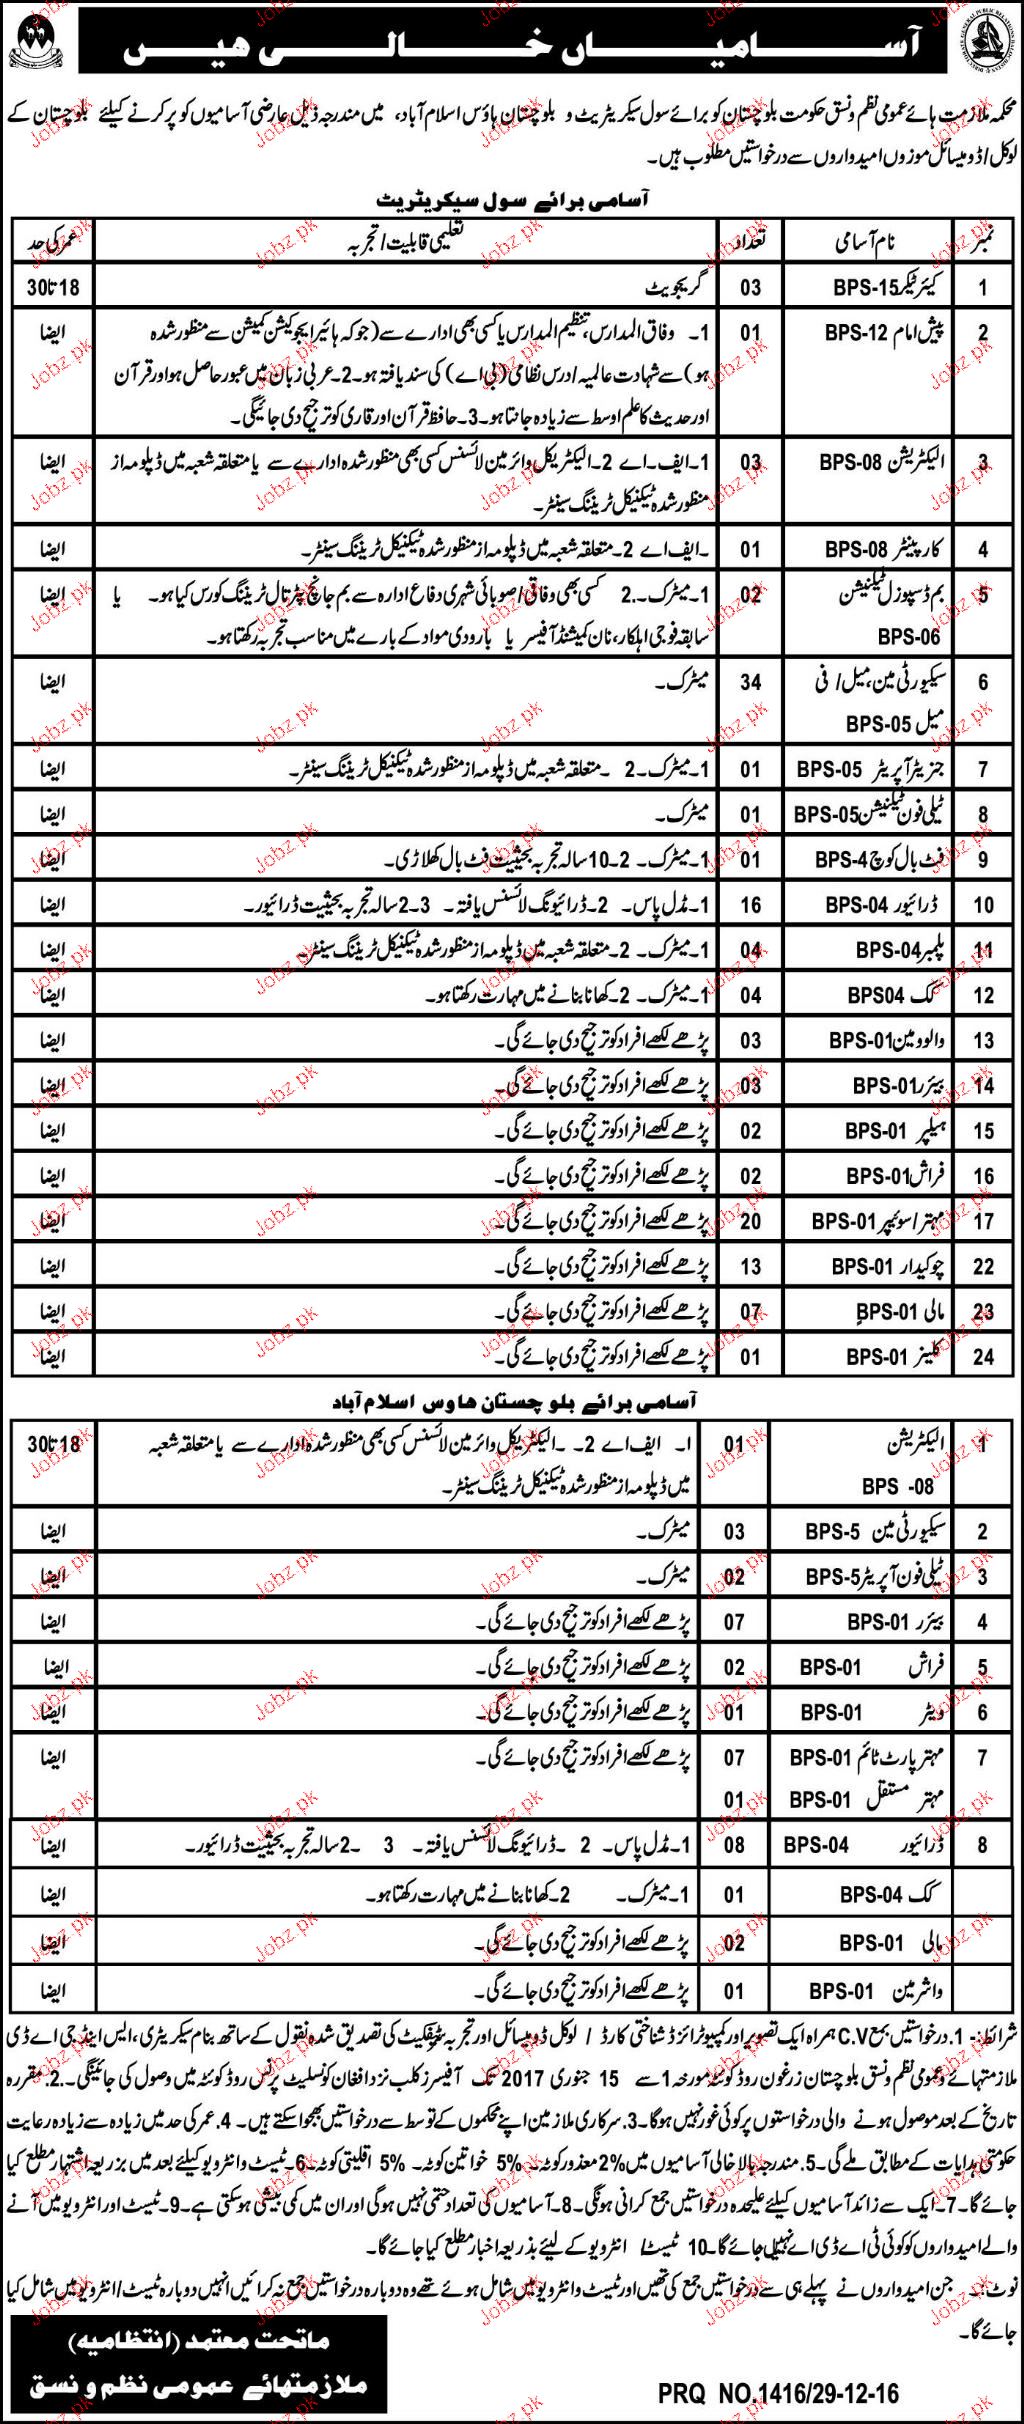 آسامیاں خالی ہیں
محکمہ ملازمت ہائے عمومی نظم ونسق حکومت بلوچستان کو برائے سول سیکریٹریٹ و بلوچستان ہاؤس اسلام آباد، میں مندرجہ ذیل عارضی آسامیوں کو پر کرنے کیلئے بلوچستان کے
لوکل/ڈومیسائل موزوں امیدواروں سے درخواستیں مطلوب ہیں۔
آسامی برائے سول سیکریٹریٹ
نمبر نام آسامی تعداد تعلیمی قابلیت/تجربہ عمر کی حد
1 کیئر ٹیکر BPS-15 03 گریجویٹ 18 تا 30
2 پیش امام BPS-12 01 1۔ وفاق المدارس، تنظیم المدارس یا کسی بھی ادارے سے (جو کہ ہائیر ایجوکیشن کمیشن سے منظور شدہ ایضا
ہو) سے شہادت عالمیہ/درس نظامی (بی اے) کی سند یافتہ ہو۔2۔عربی زبان میں عبور حاصل ہو اور قرآن
اور حدیث کا علم اوسط سے زیادہ جانتا ہو۔3۔حافظ قرآن اور قاری کو ترجیح دی جائیگی۔
3 الیکٹریشن BPS-08 03 1۔ایف۔اے 2۔الیکٹریکل وائر مین لائسنس کسی بھی منظور شدہ ادارے سے یا متعلقہ شعبہ میں ڈپلومہ از ایضا
منظور شدہ ٹیکنیکل ٹریننگ سینٹر۔
4 کارپینٹر BPS-08 01 ۔ایف اے 2۔متعلقہ شعبہ میں ڈپلومہ از منظور شدہ ٹیکنیکل ٹریننگ سینٹر۔ ایضا
5 بم ڈسپوزل ٹیکنیشن 02 1۔میٹرک۔ 2۔ کسی بھی وفاقی/صوبائی شہری دفاع ادارہ سے بم جانچ پڑتال ٹریننگ کورس کیا ہو۔ یا ایضا
BPS-06 سابقہ فوجی اہلکار، نان کمیشنڈ آفیسر یا بارودی مواد کے بارے میں مناسب تجربہ رکھتا ہو۔
6 سیکیورٹی مین، میل/ فی 34 میٹرک۔ ایضا
میل BPS-05
7 جنریٹر آپریٹر BPS-05 01 1۔میٹرک۔2 ۔متعلقہ شعبہ میں ڈپلومہ از منظور شدہ ٹیکنیکل ٹریننگ سینٹر۔ ایضا
8 ٹیلی فون ٹیکنیشن BPS-05 01 میٹرک۔ ایضا
9 فٹ بال کوچ BPS-4 01 1۔میٹرک۔ 2۔10 سالہ تجربہ بحیثیت فٹ بال کھلاڑی۔ ایضا
10 ڈرائیور BPS-04 16 1۔مڈل پاس۔ 2۔ڈرائیونگ لائسنس یافتہ۔ 3۔2 سالہ تجربہ بحیثیت ڈرائیور۔ ایضا
11 پلمبر BPS-04 04 1۔میٹرک۔ 2۔متعلقہ شعبہ میں ڈپلومہ از منظور شدہ ٹیکنیکل ٹریننگ سینٹر۔ ایضا
12 کک BPS04 04 1۔میٹرک۔ 2۔کھانا بنانے میں مہارت رکھتا ہو۔ ایضا
13 والو مین BPS-01 03 پڑھے لکھے افراد کو ترجیح دی جائے گی۔ ایضا
14 بیئرر BPS-01 03 پڑھے لکھے افراد کو ترجیح دی جائے گی۔ ایضا
15 ہیلپر BPS-01 02 پڑھے لکھے افراد کو ترجیح دی جائے گی۔ ایضا
16 فراش BPS-01 02 پڑھے لکھے افراد کو ترجیح دی جائے گی۔ ایضا
17 مہتر/سوئیپر BPS-01 20 پڑھے لکھے افراد کو ترجیح دی جائے گی۔ ایضا
22 چوکیدار BPS-01 13 پڑھے لکھے افراد کو ترجیح دی جائے گی۔ ایضا
23 مالی BPS-01 07 پڑھے لکھے افراد کو ترجیح دی جائے گی۔ ایضا
24 کلینر BPS-01 01 پڑھے لکھے افراد کو ترجیح دی جائے گی۔ ایضا
آسامی برائے بلوچستان ہاوس اسلام آباد
1 الیکٹریشن 01 ا۔ ایف اے 2۔ ۔الیکٹریکل وائر مین لائسنس کسی بھی منظور شدہ ادارے سے یا متعلقہ شعبہ 18 تا 30
BPS -08 میں ڈپلومہ از منظور شدہ ٹیکنیکل ٹریننگ سینٹر۔
2 سیکیورٹی مین BPS-5 03 میٹرک۔ ایضا
3 ٹیلی فون آپریٹر BPS-5 02 میٹرک۔ ایضا
4 بیئرر BPS-01 07 پڑھے لکھے افراد کو ترجیح دی جائے گی۔ ایضا
5 فراش BPS-01 02 پڑھے لکھے افراد کو ترجیح دی جائے گی۔ ایضا
6 ویٹر BPS-01 01 پڑھے لکھے افراد کو ترجیح دی جائے گی۔ ایضا
7 مہتر پارٹ ٹائم BPS-01 07 پڑھے لکھے افراد کو ترجیح دی جائے گی۔ ایضا
مہتر مستقل BPS-01 01
8 ڈرائیور BPS-04 08 1۔مڈل پاس۔ 2 ۔ڈرائیونگ لائسنس یافتہ۔ 3 ۔2 سالہ تجربہ بحیثیت ڈرائیور۔ ایضا
کک BPS-04 01 1۔میٹرک۔ 2۔کھانا بنانے میں مہارت رکھتا ہو۔ ایضا
مالی BPS-01 02 پڑھے لکھے افراد کو ترجیح دی جائے گی۔ ایضا
واشر مین BPS-01 01 پڑھے لکھے افراد کو ترجیح دی جائے گی۔ ایضا
شرائط:- 1۔درخواستیں بمع C.V ہمراہ ایک تصویر اور کمپیوٹرائزڈ شناختی کارڈ / لوکل ڈومیسائل اور تجربہ سرٹیفکیٹ کی تصدیق شدہ نقول کے ساتھ بنام سیکریٹری، ایس اینڈ جی اے ڈی
ملازمتہائے عمومی نظم ونسق بلوچستان زرغون روڈ کوئٹہ مورخہ 1 سے 15 جنوری 2017 تک آفیسرز کلب نزد افغان کونسلیٹ پرنس روڈ کوئٹہ میں وصول کی جائینگی۔2۔مقررہ
تاریخ کے بعد موصول ہونے والی درخواستوں پر کوئی غور نہیں ہوگا۔3۔سرکاری ملازمین اپنے محکموں کے توسط سے درخواستیں بھجوا سکتے ہیں۔4۔عمر کی حد میں زیادہ سے زیادہ رعایت
حکومتی ہدایات کے مطابق ملے گی۔5۔مندرجہ بالا خالی آسامیوں میں 2% معذور کوٹہ۔ 5% خواتین کوٹہ۔ 5% اقلیتی کوٹہ۔6۔ٹیسٹ وانٹرویو کیلئے بعد میں بزریعہ اشتہار مطلع کیا
جائے گا۔7۔ایک سے زائد آسامیوں کیلئے علیحدہ درخواستیں جمع کرانی ہونگی۔8۔آسامیوں کی تعداد حتمی نہیں ہوگی اور ان میں کمی بیشی ہوسکتی ہے۔9۔ٹیسٹ اور انٹرویو میں آنے
والے امیدواروں کو کوئی ٹی اے ڈی اے نہیں دیا جائے گا۔10 ٹیسٹ/ انٹرویو کے لیئے بذریعہ اخبار مطلع کیا جائے گا۔
نوٹ:۔ جن امیدواروں نے پہلے ہی سے درخواستیں جمع کی تھیں اور ٹیسٹ وانٹرویو میں شامل ہوئے تھے وہ دوبارہ درخواستیں جمع نہ کرائیں انہیں دوبارہ ٹیسٹ/انٹرویو میں شامل کیا
جائے گا۔
ماتحت معتمد (انتظامیہ)
ملازمتہائے عمومی نظم و نسق
PRQ NO.1416/29-12-16
Jobz.pk